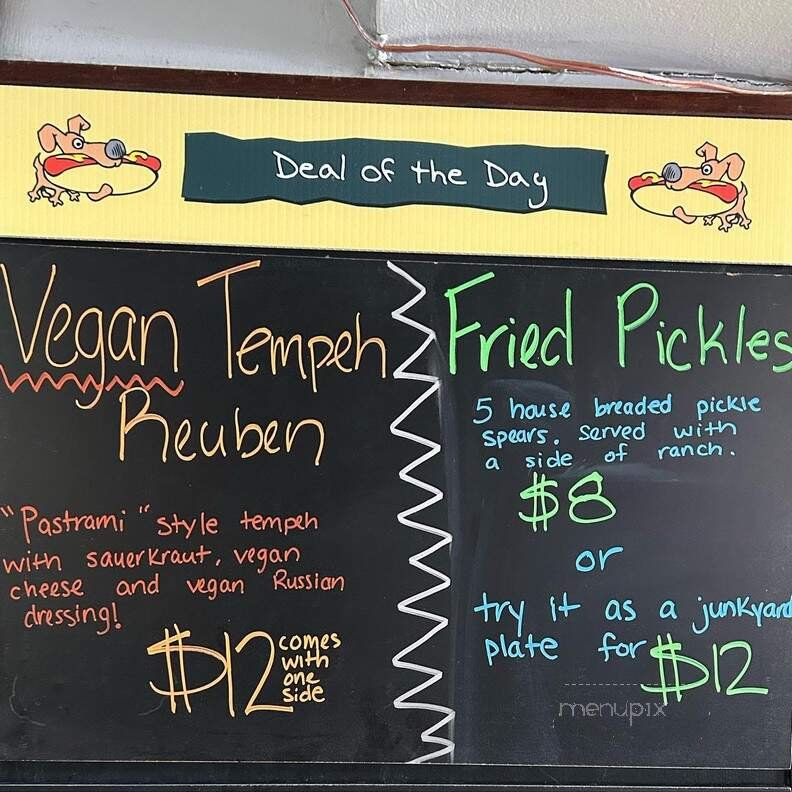 Deal of the Day
Vegan Tempeh
Reuben
"Pastrami" style tempeh
with sauerkraut, vegan
cheese and vegan Russian
dressing!
$12 comes
with
one
side
Fried Pickles
5 house breaded pickle
spears. Served with
a side of ranch.
$8
or
try it as a junkyard
plate for $12
menupix